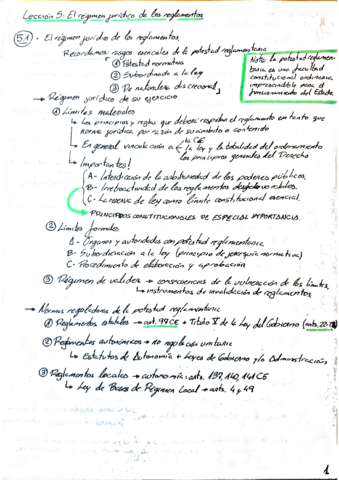 Lección 5: El régimen jurídico de los reglamentos
5.1 · El régimen jurídico de los reglamentos.
Recordamos: rasgos esenciales de la potestad reglamentaria
① Potestad normativa
② Subordinada a la ley
③ De naturaleza discrecional
Nota: la potestad reglamen-
taria es una facultad
constitucional ordinaria,
imprescindible para el
funcionamiento del Estado.
→ Régimen jurídico de su ejercicio
① Límites materiales
↳ Los principios y reglas que debe respetar el reglamento en tanto que
norma jurídica por razón de su ámbito o contenido
↳ En general vinculación a la CE
la ley y la totalidad del ordenamiento
los principios generales del Derecho
↳ Importantes!
A- Interdicción de la arbitrariedad de los poderes públicos.
B- Irretroactividad de los reglamentos
C- La reserva de ley como límite constitucional esencial.
→ PRINCIPIOS CONSTITUCIONALES DE ESPECIAL IMPORTANCIA.
② Límites formales
A- Órganos y autoridades con potestad reglamentaria
B- Subordinación a la ley (principio de jerarquía normativa)
C- Procedimiento de elaboración y aprobación
③ Régimen de validez → consecuencias de la vulneración de los límites.
↳ instrumentos de invalidación de reglamentos.
→ Normas reguladoras de la potestad reglamentaria
① Reglamentos estatales → art. 97 CE + Título V de la Ley del Gobierno (arts. 22-
② Reglamentos autonómicos → no regulación unitaria
↳ Estatutos de Autonomía + Leyes de Gobierno y/o Administración
③ Reglamentos locales → autonomía: arts. 137, 140, 141 CE
↳ Ley de Bases de Régimen Local → arts. 4 y 49
1